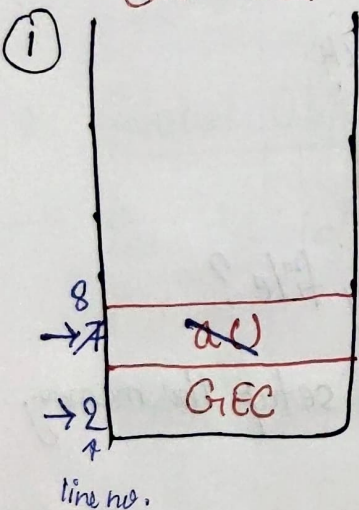 i
8
→7 a()
→2 GEC
↑
line no.